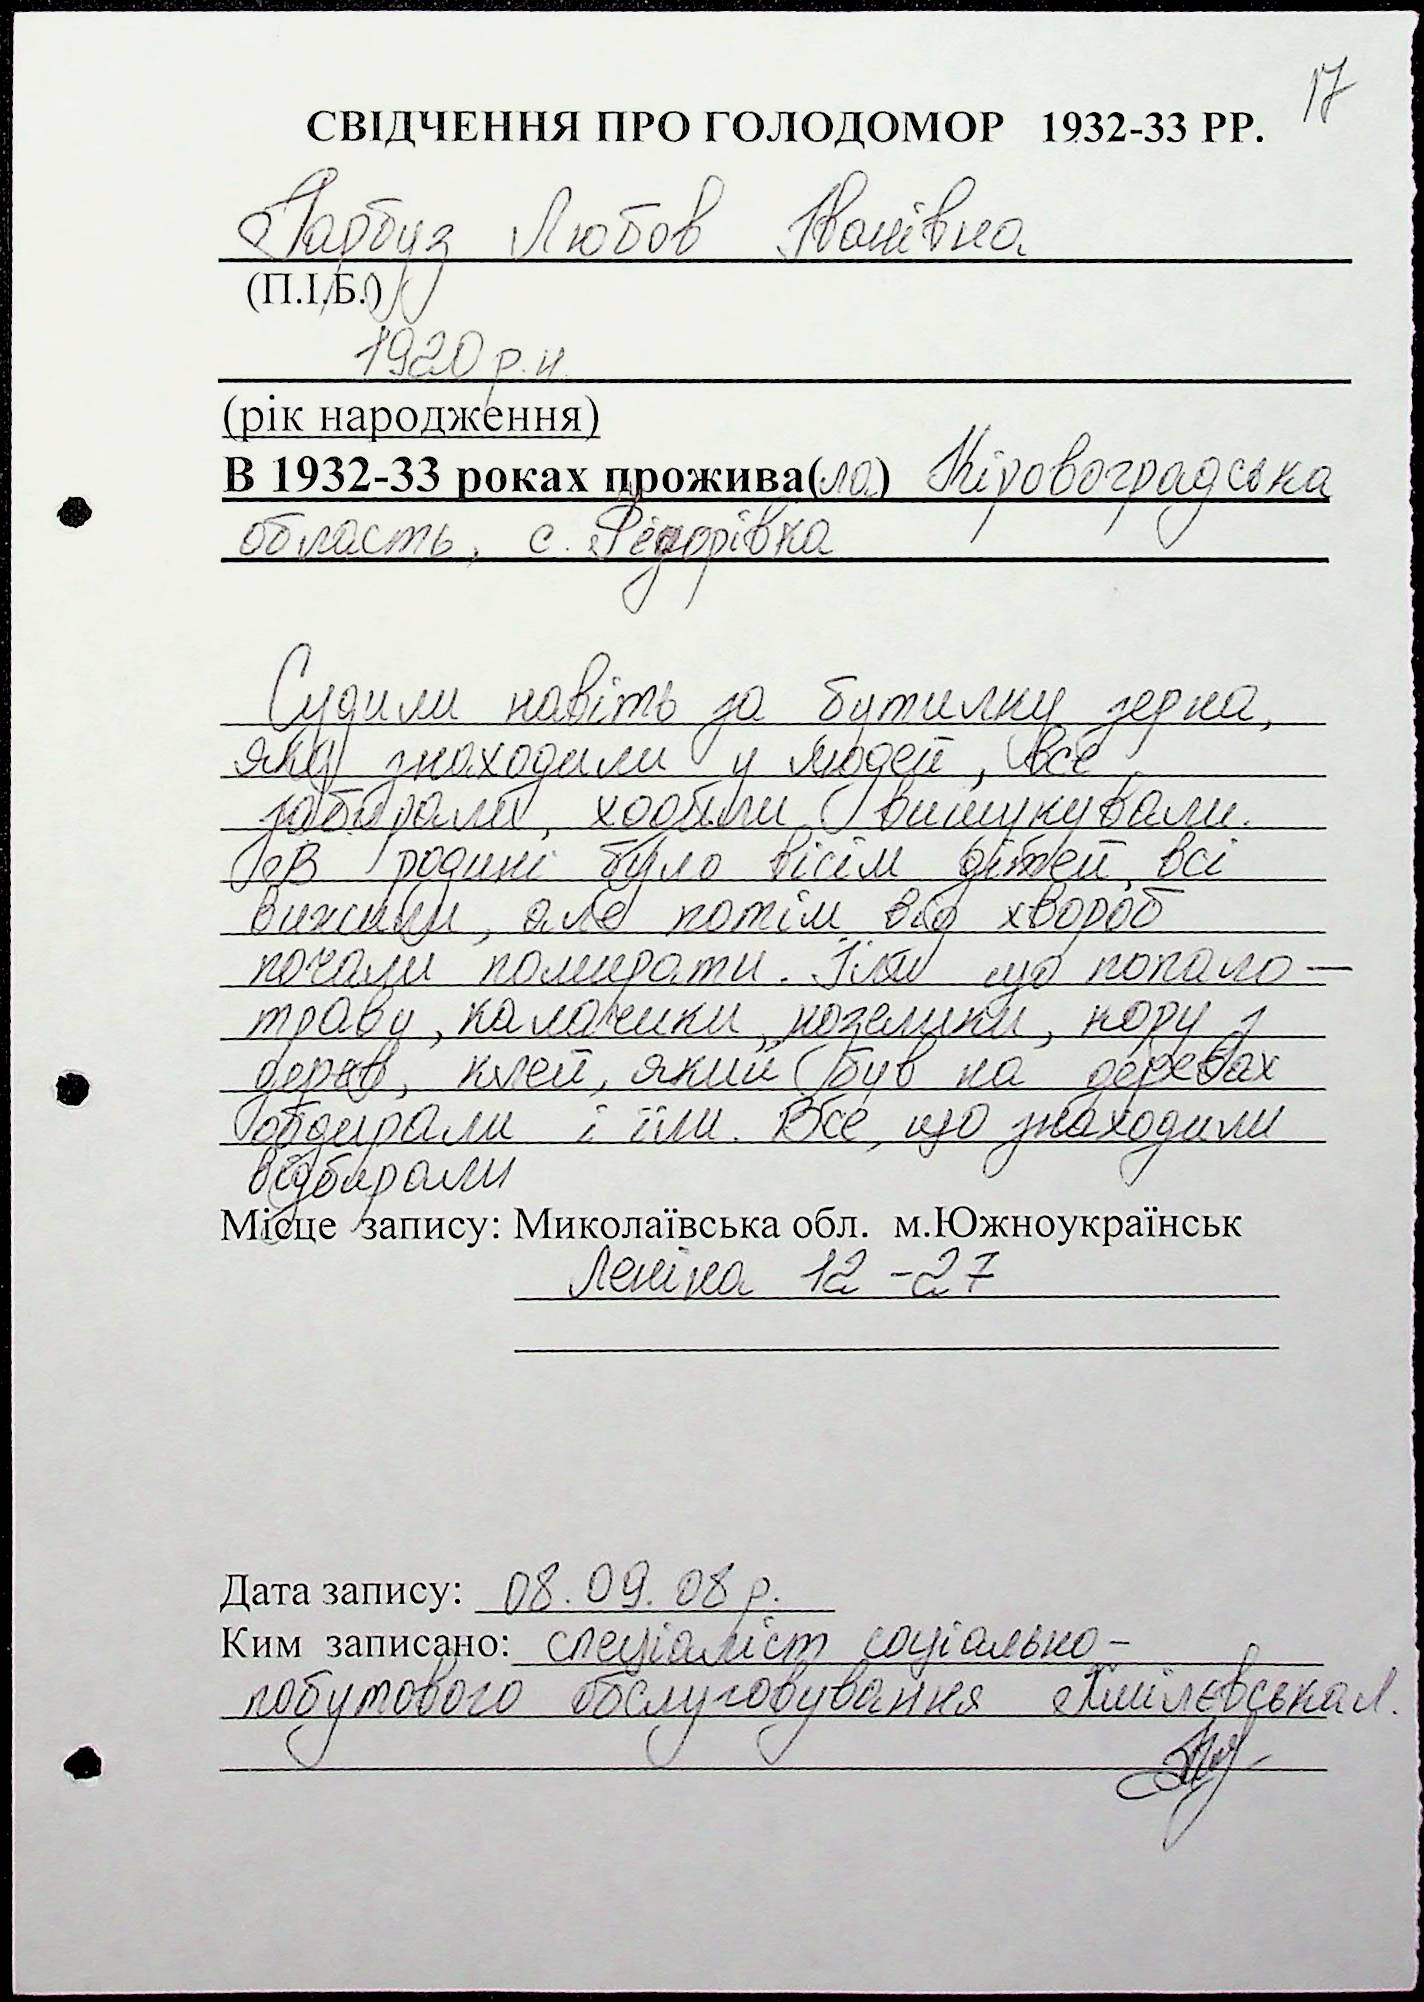 17
СВІДЧЕННЯ ПРО ГОЛОДОМОР 1932-33 РР.
Гарбуз Любов Іванівна
(П.І.Б.)
1920 р.н.
(рік народження)
В 1932-33 роках прожива(ла) Кіровоградська
область, с. Федорівка
Судили навіть за бутилку зерна,
яку знаходили у людей, все
забирали, ходили вишукували.
В родині було вісім дітей, всі
вижили, але потім від хвороб
почали помирати. Їли що попало –
траву, калачики, козелики, кору з
дерев, клей, який був на деревах
обдирали і їли. Все, що знаходили
відбирали
Місце запису: Миколаївська обл. м.Южноукраїнськ
Леніна 12 – 27
Дата запису: 08.09.08 р.
Ким записано: спеціаліст соціально –
побутового обслуговування Хмілєвська Л.